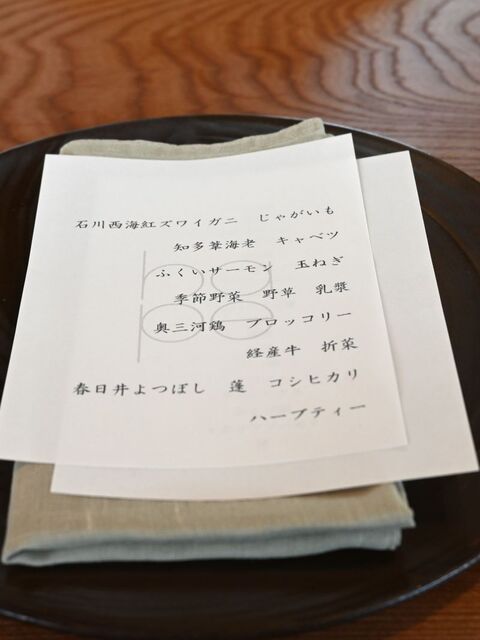 石川西海紅ズワイガニ　じゃがいも
知多葦海老　キャベツ
ふくいサーモン　玉ねぎ
季節野菜　野草　乳漿
奥三河鶏　ブロッコリー
経産牛　折菜
春日井よつぼし　蓬　コシヒカリ
ハーブティー